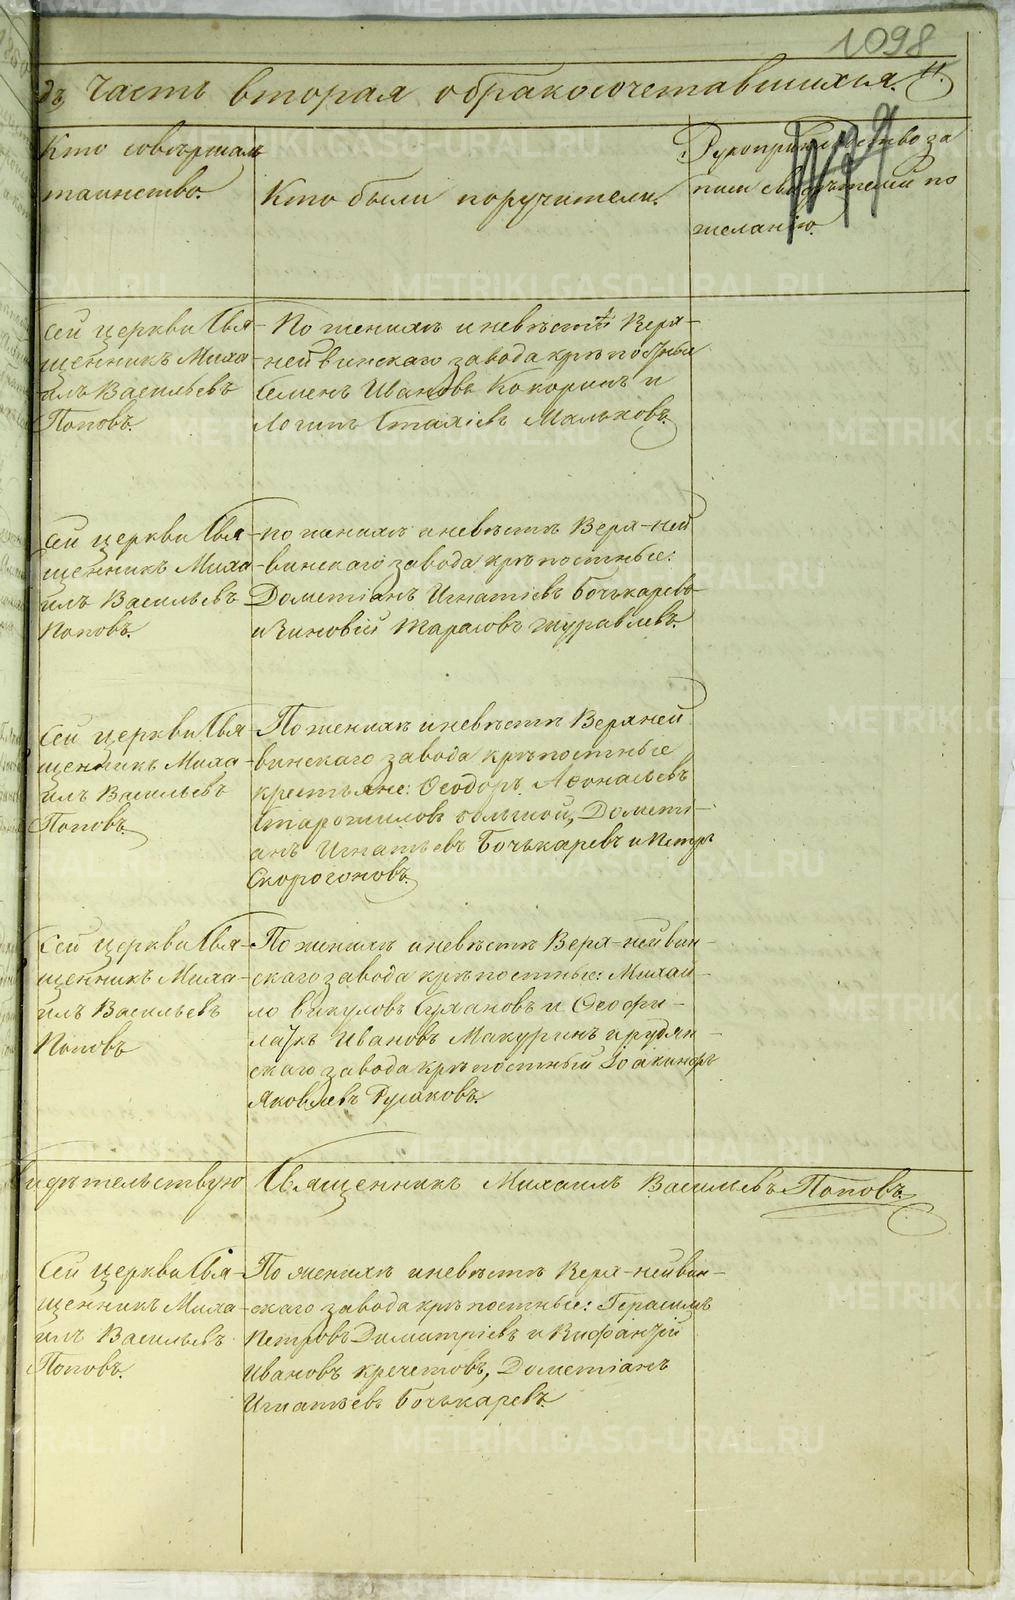 1098
дъ Часть вторая о бракосочетавшихся.
Кто совершалъ
таинство.
Кто были поручители.
Рукоприкладство за
писи свидѣтелей по
желанію.
Сей церкви Свя-
щенникъ Миха
илъ Васильевъ
Поповъ.
По женихѣ и невѣстѣ Верх-
нейвинскаго завода крѣпостные
Семенъ Ивановъ Кокоринъ и
Логинъ Мальковъ.
Сей церкви Свя
щенникъ Миха
илъ Васильевъ
Поповъ.
по женихѣ и невѣстѣ Верх-ней
-винскаго завода крѣпостные:
Дометіанъ Игнатіевъ Бочькаревъ
и Зиновій Тарасовъ Журавлевъ.
Сей церкви Свя
щенникъ Миха
илъ Васильевъ
Поповъ.
По женихѣ и невѣстѣ Верхней
винскаго завода крѣпостные
крестьяне: Ѳеодоръ Аѳонасьевъ
Старожиловъ большой, Дометі-
анъ Игнатьевъ Бочькаревъ и Петръ
Скорогоновъ.
Сей церкви Свя-
щенникъ Миха-
илъ Васильевъ
Поповъ
По женихѣ и невѣстѣ Верх-нейвин-
скаго завода крѣпостные: Михаи-
ло Викуловъ и Ѳеофи-
лактъ Ивановъ Макуринъ и рудян-
скаго завода крѣпостный Іоакинфъ
Яковлевъ Русаковъ.
видѣтельствую Священникъ Михаилъ Васильевъ Поповъ.
Сей церкви Свя-
щенникъ Миха-
илъ Васильевъ
Поповъ.
По женихѣ и невѣстѣ Верх-нейвин-
скаго завода крѣпостные: Герасимъ
Петровъ Димитріевъ и Вифантій
Ивановъ Кречетовъ, Дометіанъ
Игнатьевъ Бочькаревъ.
METRIKI.GASO-URAL.RU